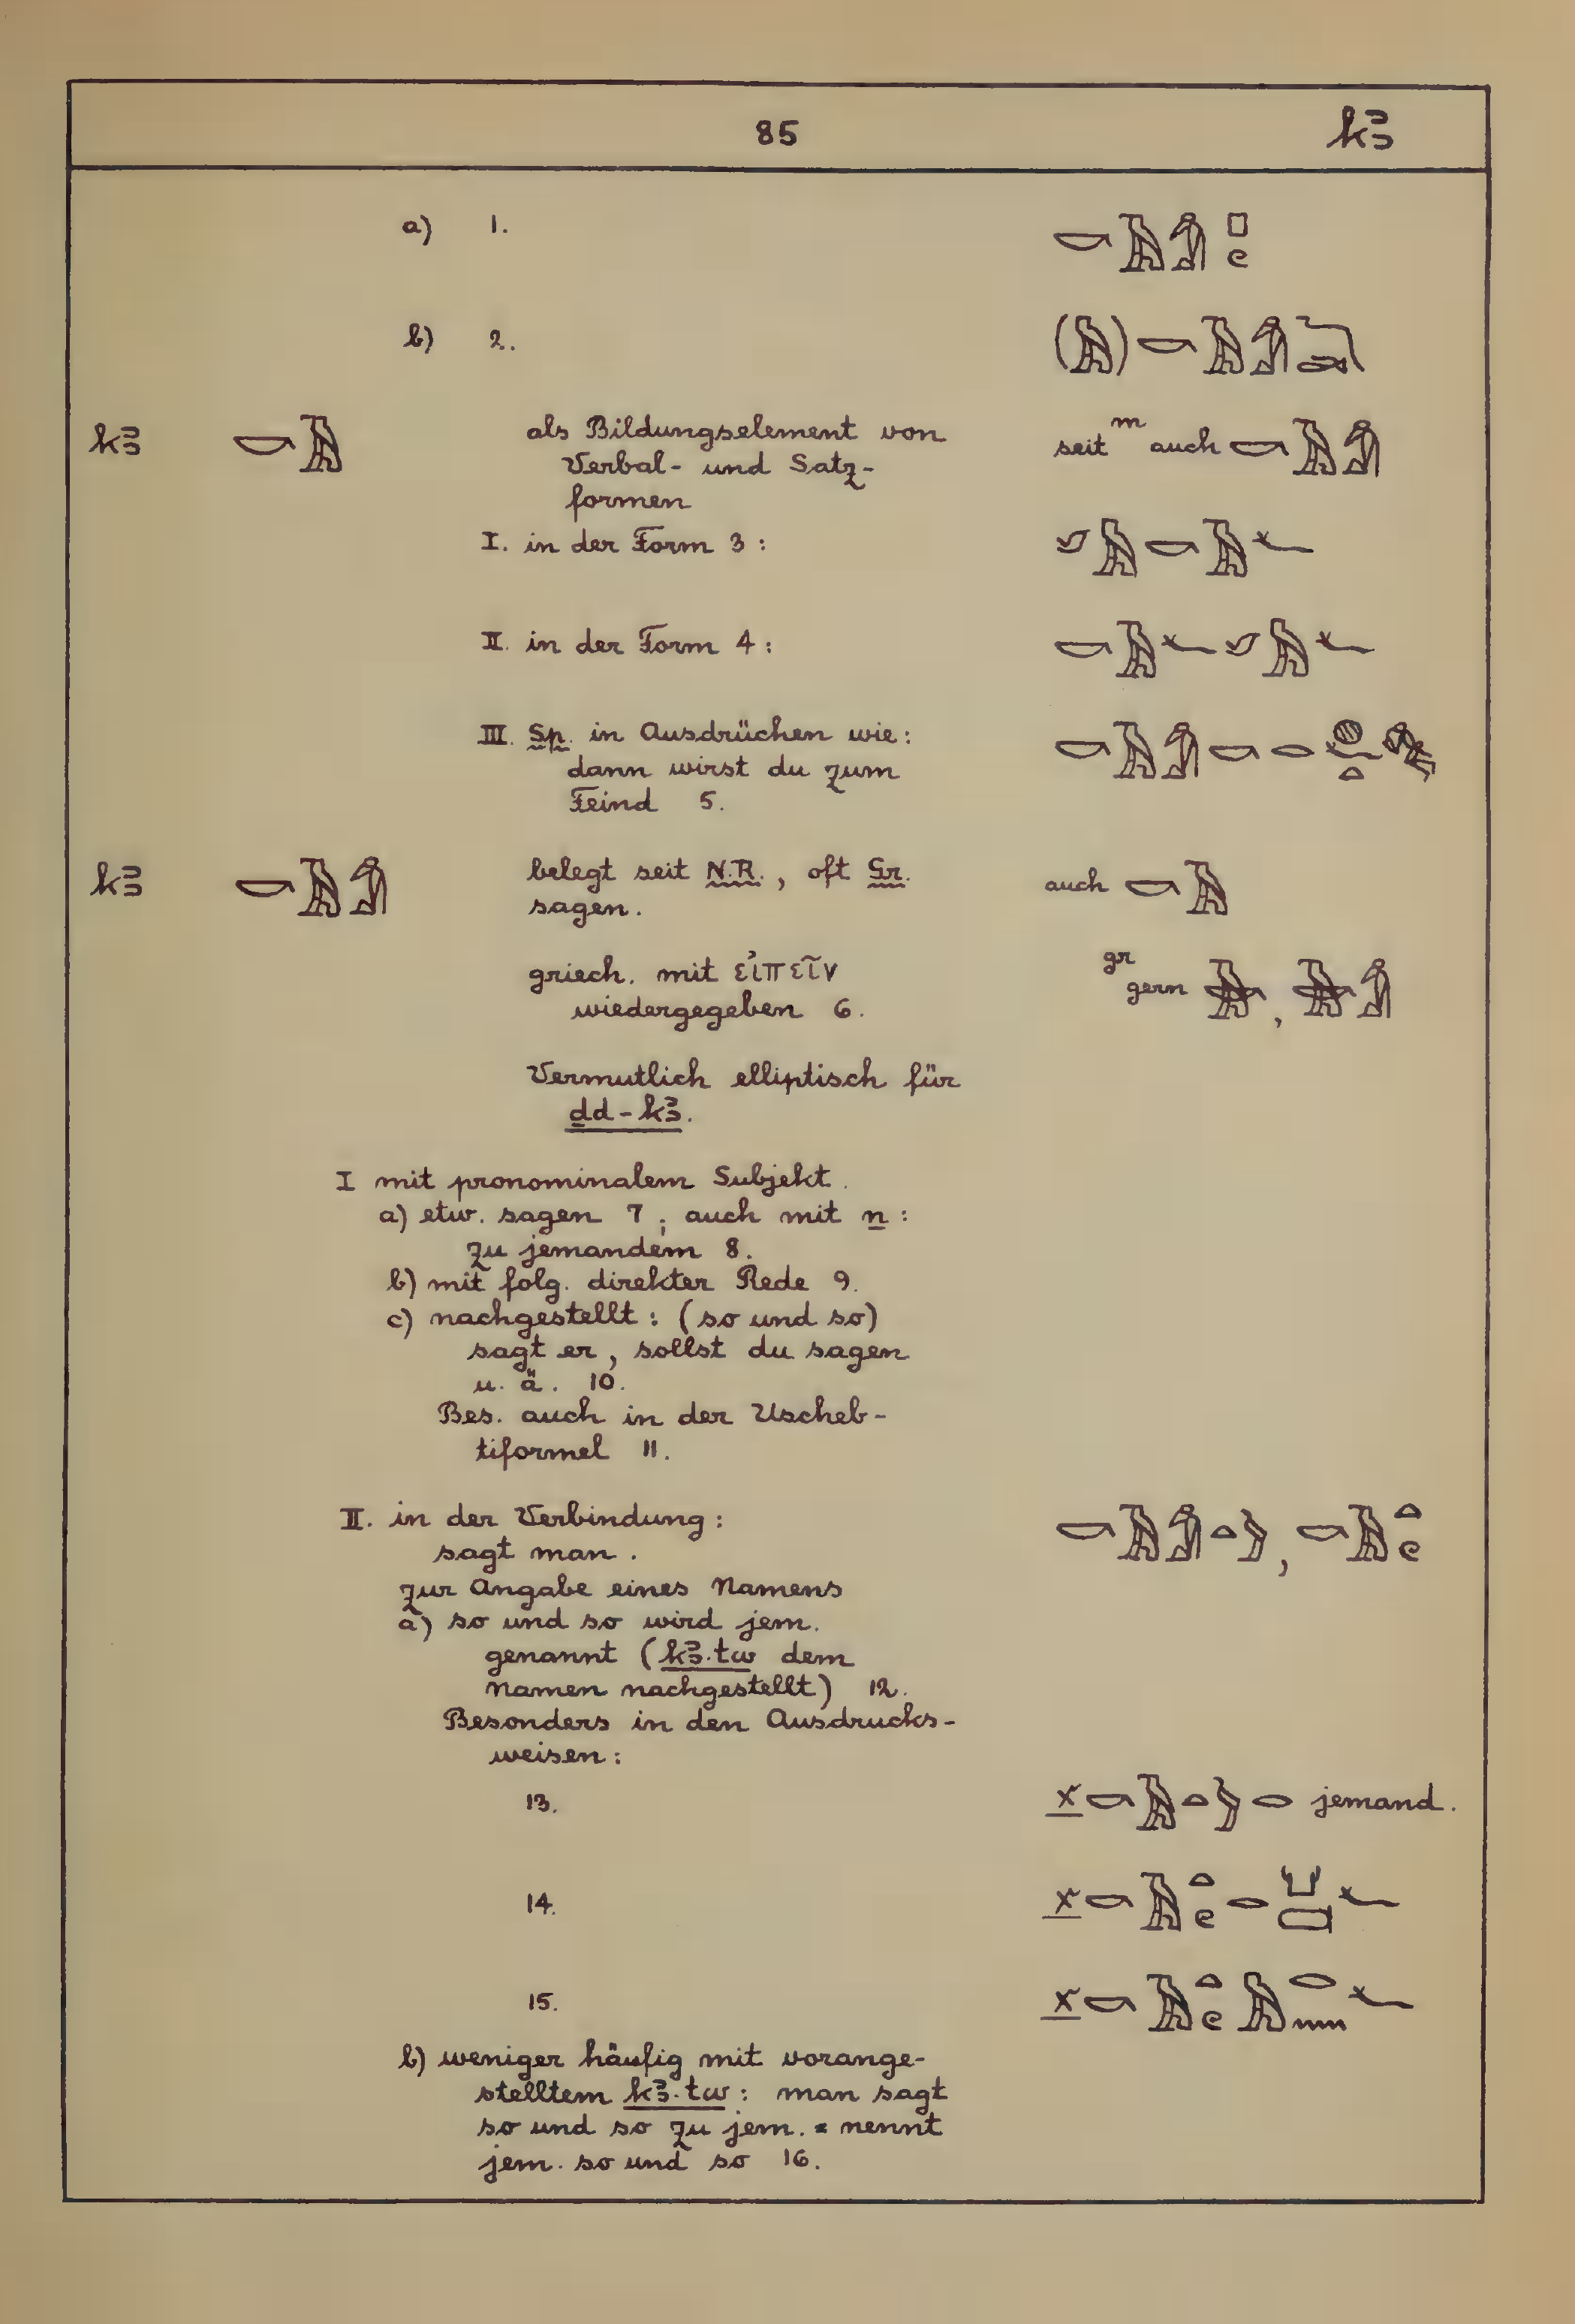 85 kꜣ
a) 1. 𓎡𓄿𓀁𓊪𓏲
b) 2. (𓅓)𓎡𓄿𓀁
kꜣ 𓎡𓄿 als Bildungselement von seit m auch 𓎡𓄿𓀁
Verbal- und Satz-
formen
I. in der Form 3 : 𓌳𓄿𓎡𓄿𓆑
II. in der Form 4 : 𓎡𓄿𓆑𓌳𓄿𓆑
III. Sp. in Ausdrücken wie : 𓎡𓄿𓀁𓎡𓂋𓐍𓆑𓏏
dann wirst du zum
Feind 5.
kꜣ 𓎡𓄿𓀁 belegt seit N.R., oft Gr. auch 𓎡𓄿
sagen.
griech. mit εἰπεῖν gr gern
wiedergegeben 6.
Vermutlich elliptisch für
ḏd-kꜣ.
I mit pronominalem Subjekt.
a) etw. sagen 7 ; auch mit n :
zu jemandem 8.
b) mit folg. direkter Rede 9.
c) nachgestellt : (so und so)
sagt er, sollst du sagen
u. ä. 10.
Bes. auch in der Uscheb-
tiformel 11.
II. in der Verbindung : 𓎡𓄿𓀁𓏏𓅱, 𓎡𓄿𓏏𓏲
sagt man.
zur Angabe eines Namens
a) so und so wird jem.
genannt (kꜣ.tw dem
Namen nachgestellt) 12.
Besonders in den Ausdrucks-
weisen :
13. x 𓎡𓄿𓏏𓅱𓂋 jemand.
14. x 𓎡𓄿𓏏𓏲𓂋𓂓𓆑
15. x 𓎡𓄿𓏏𓏲𓅓𓂋𓈖𓆑
b) weniger häufig mit vorange-
stelltem kꜣ.tw : man sagt
so und so zu jem. = nennt
jem. so und so 16.